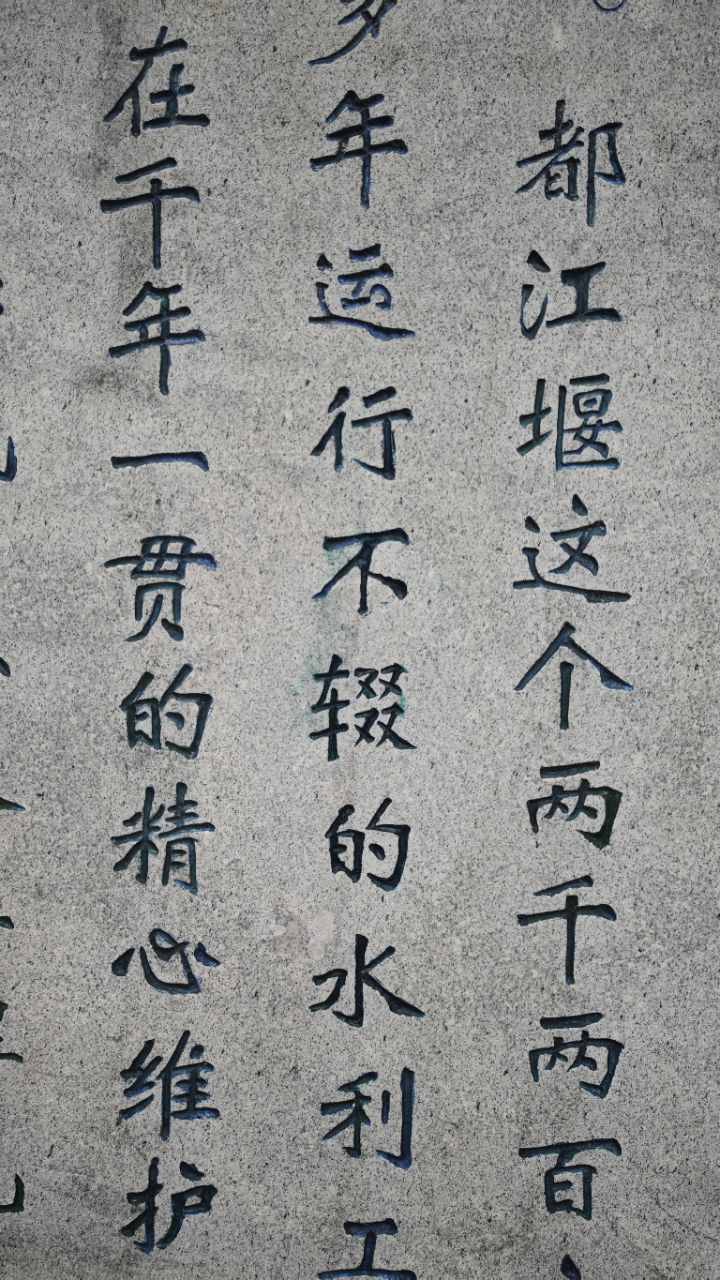 都江堰这个两千两百
多年运行不辍的水利工
在千年一贯的精心维护